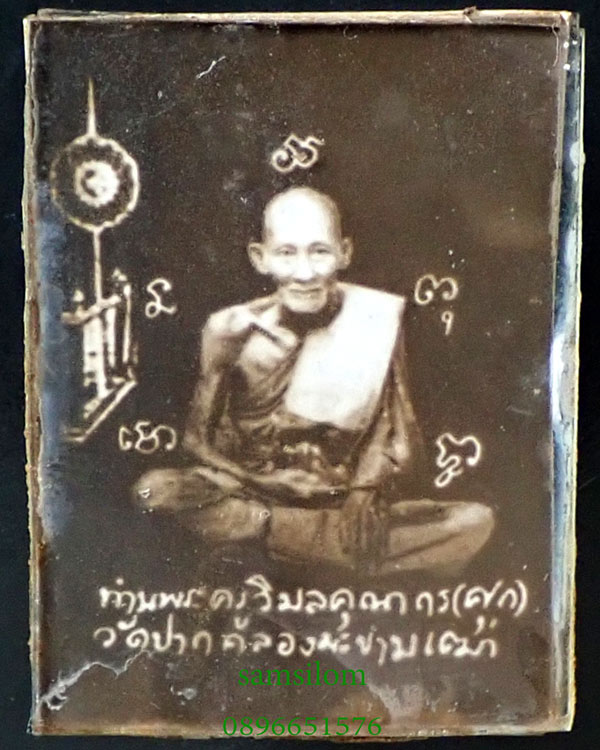 ท่านพระครูวิมลคุณากร(ศุก)
วัดปากคลองมะขามเฒ่า
samsilom
0896651576